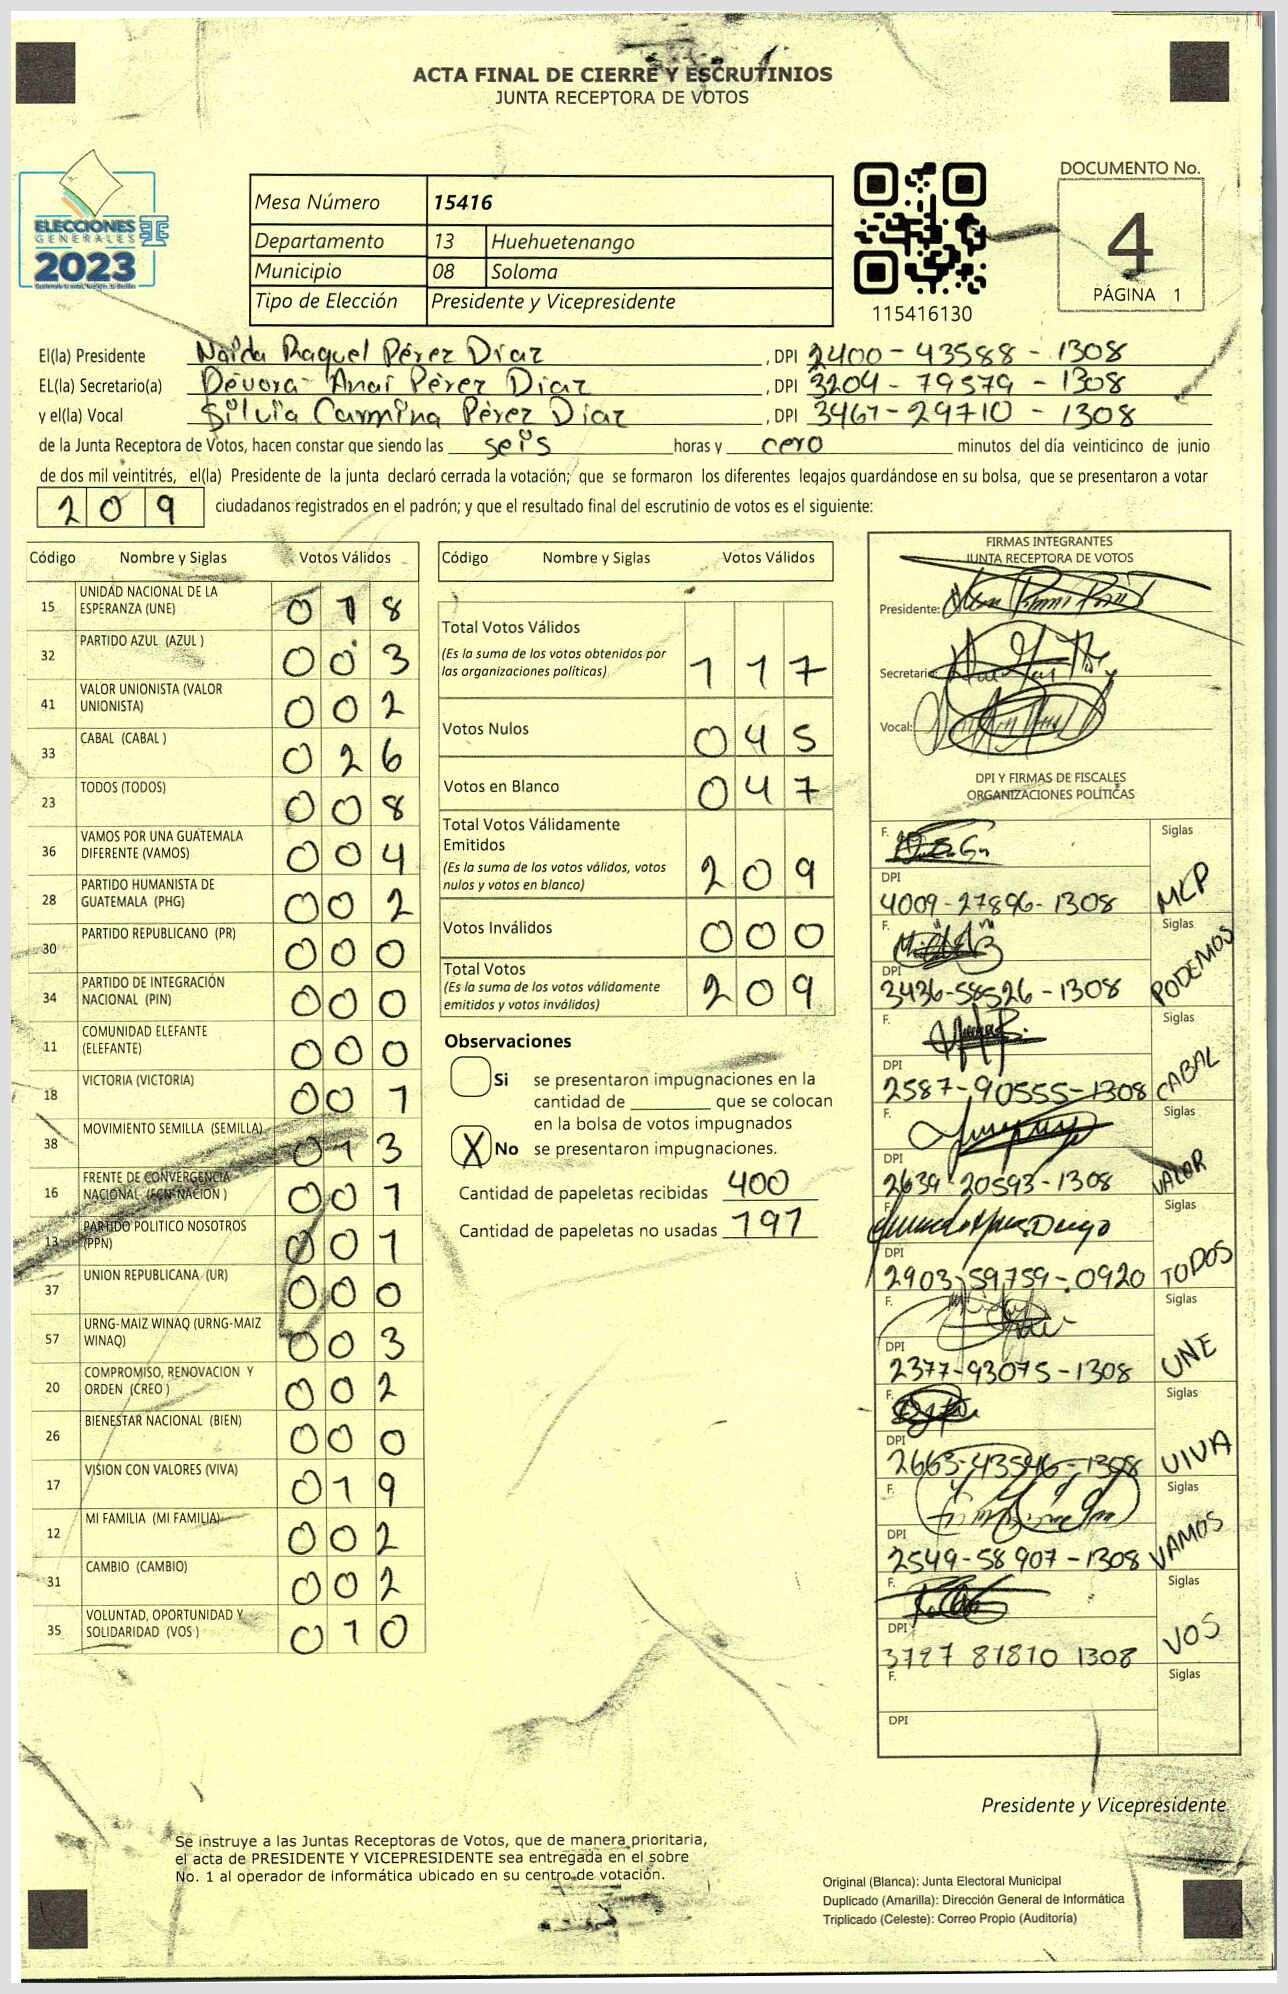 ACTA FINAL DE CIERRE Y ESCRUTINIOS
JUNTA RECEPTORA DE VOTOS
ELECCIONES
GENERALES
2023
Mesa Número 15416
Departamento 13 Huehuetenango
Municipio 08 Soloma
Tipo de Elección Presidente y Vicepresidente
115416130
DOCUMENTO No.
4
PÁGINA 1
El(la) Presidente Naida Raquel Pérez Díaz , DPI 2400-43588-1308
EL(la) Secretario(a) Dévora Anaí Pérez Díaz , DPI 3204-79579-1308
y el(la) Vocal Silvia Carmina Pérez Díaz , DPI 3461-29710-1308
de la Junta Receptora de Votos, hacen constar que siendo las seis horas y cero minutos del día veinticinco de junio
de dos mil veintitrés, el(la) Presidente de la junta declaró cerrada la votación; que se formaron los diferentes legajos guardándose en su bolsa, que se presentaron a votar
209 ciudadanos registrados en el padrón; y que el resultado final del escrutinio de votos es el siguiente:
Código Nombre y Siglas Votos Válidos
15 UNIDAD NACIONAL DE LA ESPERANZA (UNE) 018
32 PARTIDO AZUL (AZUL ) 003
41 VALOR UNIONISTA (VALOR UNIONISTA) 002
33 CABAL (CABAL ) 026
23 TODOS (TODOS) 008
36 VAMOS POR UNA GUATEMALA DIFERENTE (VAMOS) 004
28 PARTIDO HUMANISTA DE GUATEMALA (PHG) 002
30 PARTIDO REPUBLICANO (PR) 000
34 PARTIDO DE INTEGRACIÓN NACIONAL (PIN) 000
11 COMUNIDAD ELEFANTE (ELEFANTE) 000
18 VICTORIA (VICTORIA) 001
38 MOVIMIENTO SEMILLA (SEMILLA) 013
16 FRENTE DE CONVERGENCIA NACIONAL (FCN-NACION ) 001
13 PARTIDO POLITICO NOSOTROS (PPN) 001
37 UNION REPUBLICANA (UR) 000
57 URNG-MAIZ WINAQ (URNG-MAIZ WINAQ) 003
20 COMPROMISO, RENOVACION Y ORDEN (CREO ) 002
26 BIENESTAR NACIONAL (BIEN) 000
17 VISION CON VALORES (VIVA) 019
12 MI FAMILIA (MI FAMILIA) 002
31 CAMBIO (CAMBIO) 002
35 VOLUNTAD, OPORTUNIDAD Y SOLIDARIDAD (VOS ) 010
Código Nombre y Siglas Votos Válidos
Total Votos Válidos
(Es la suma de los votos obtenidos por
las organizaciones políticas) 117
Votos Nulos 045
Votos en Blanco 047
Total Votos Válidamente
Emitidos
(Es la suma de los votos válidos, votos
nulos y votos en blanco) 209
Votos Inválidos 000
Total Votos
(Es la suma de los votos válidamente
emitidos y votos inválidos) 209
Observaciones
Si se presentaron impugnaciones en la
cantidad de ________ que se colocan
en la bolsa de votos impugnados
X No se presentaron impugnaciones.
Cantidad de papeletas recibidas 400
Cantidad de papeletas no usadas 191
FIRMAS INTEGRANTES
JUNTA RECEPTORA DE VOTOS
Presidente:
Secretario:
Vocal:
DPI Y FIRMAS DE FISCALES
ORGANIZACIONES POLÍTICAS
F. Siglas
DPI
4009-27896-1308 MLP
F. Siglas
DPI
3436-58526-1308 PODEMOS
F. Siglas
DPI
2587-90555-1308 CABAL
F. Siglas
DPI
2639 20593-1308 VALOR
F. Siglas
DPI
2903-59759-0920 TODOS
F. Siglas
DPI
2377-93075-1308 UNE
F. Siglas
DPI
2663-43546-1308 VIVA
F. Siglas
DPI
2549-58907-1308 VAMOS
F. Siglas
DPI
3727 81810 1308 VOS
F. Siglas
DPI
Presidente y Vicepresidente
Se instruye a las Juntas Receptoras de Votos, que de manera prioritaria,
el acta de PRESIDENTE Y VICEPRESIDENTE sea entregada en el sobre
No. 1 al operador de informática ubicado en su centro de votación.
Original (Blanca): Junta Electoral Municipal
Duplicado (Amarilla): Dirección General de Informática
Triplicado (Celeste): Correo Propio (Auditoría)